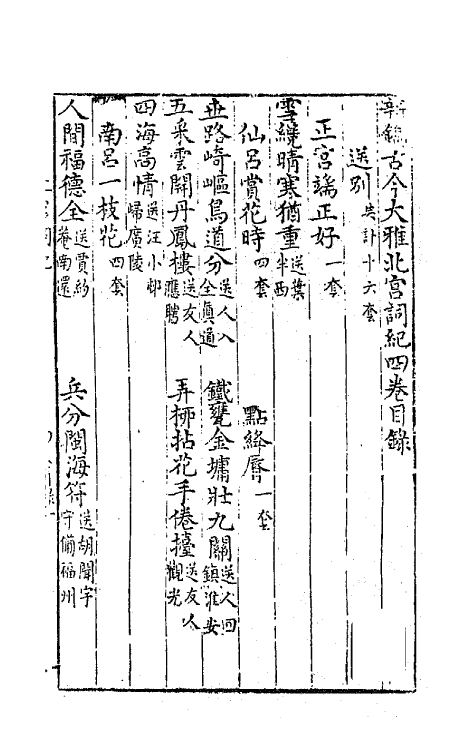 新鐫古今大雅北宮詞紀四卷目錄
送別 共計十六套
正宮端正好 一套
雪繞晴寒猶重 送葉半西
仙呂賞花時 四套 點絳唇 一套
世路崎嶇鳥道分 送人入全真通 鐵甕金墉壯九關 送人回鎮淮安
五采雲開丹鳳樓 送友人應聘 弄柳拈花手倦擡 送友人觀光
四海高情 送汪小邨歸廣陵
南呂一枝花 四套
人間福德全 送黃約菴南還 兵分閩海符 送胡聞宇守備福州